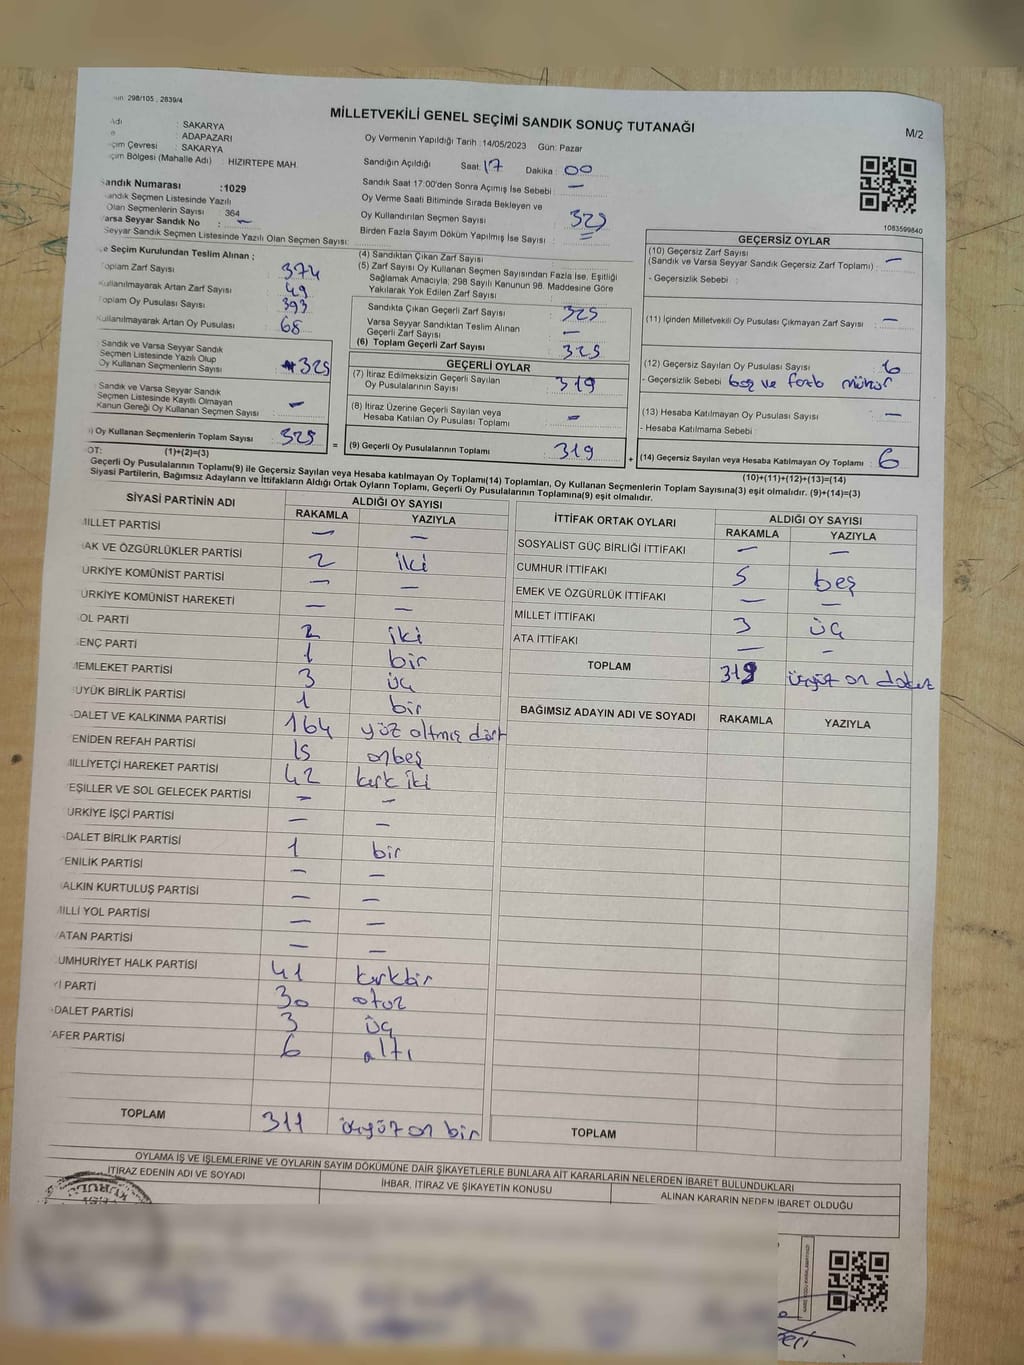 298/105 , 2839/4
MİLLETVEKİLİ GENEL SEÇİMİ SANDIK SONUÇ TUTANAĞI
M/2
Adı : SAKARYA
: ADAPAZARI
çim Çevresi : SAKARYA
çim Bölgesi (Mahalle Adı) HIZIRTEPE MAH.
Oy Vermenin Yapıldığı Tarih :14/05/2023 Gün: Pazar
Sandığın Açıldığı Saat: 17 Dakika : 00
Sandık Saat 17:00'den Sonra Açımış İse Sebebi : —
Oy Verme Saati Bitiminde Sırada Bekleyen ve
Oy Kullandırılan Seçmen Sayısı : 325
Birden Fazla Sayım Döküm Yapılmış İse Sayısı : =
Sandık Numarası :1029
andık Seçmen Listesinde Yazılı
Olan Seçmenlerin Sayısı : 364
arsa Seyyar Sandık No : —
Seyyar Sandık Seçmen Listesinde Yazılı Olan Seçmen Sayısı:
1083599840
e Seçim Kurulundan Teslim Alınan ;
oplam Zarf Sayısı : 374
ullanılmayarak Artan Zarf Sayısı : 49
oplam Oy Pusulası Sayısı : 393
ullanılmayarak Artan Oy Pusulası : 68
Sandık ve Varsa Seyyar Sandık
Seçmen Listesinde Yazılı Olup
Oy Kullanan Seçmenlerin Sayısı : 325
Sandık ve Varsa Seyyar Sandık
Seçmen Listesinde Kayıtlı Olmayan
Kanun Gereği Oy Kullanan Seçmen Sayısı : —
) Oy Kullanan Seçmenlerin Toplam Sayısı : 325
(1)+(2)=(3)
(4) Sandıktan Çıkan Zarf Sayısı :
(5) Zarf Sayısı Oy Kullanan Seçmen Sayısından Fazla İse, Eşitliği
Sağlamak Amacıyla; 298 Sayılı Kanunun 98. Maddesine Göre
Yakılarak Yok Edilen Zarf Sayısı :
Sandıkta Çıkan Geçerli Zarf Sayısı : 325
Varsa Seyyar Sandıktan Teslim Alınan
Geçerli Zarf Sayısı : —
(6) Toplam Geçerli Zarf Sayısı : 325
GEÇERLİ OYLAR
(7) İtiraz Edilmeksizin Geçerli Sayılan
Oy Pusulalarının Sayısı : 319
(8) İtiraz Üzerine Geçerli Sayılan veya
Hesaba Katılan Oy Pusulası Toplamı : —
= (9) Geçerli Oy Pusulalarının Toplamı : 319
GEÇERSİZ OYLAR
(10) Geçersiz Zarf Sayısı
(Sandık ve Varsa Seyyar Sandık Geçersiz Zarf Toplamı) : —
- Geçersizlik Sebebi :
(11) İçinden Milletvekili Oy Pusulası Çıkmayan Zarf Sayısı : —
(12) Geçersiz Sayılan Oy Pusulası Sayısı : 6
- Geçersizlik Sebebi : boş ve fazla mühür
(13) Hesaba Katılmayan Oy Pusulası Sayısı : —
- Hesaba Katılmama Sebebi :
+ (14) Geçersiz Sayılan veya Hesaba Katılmayan Oy Toplamı : 6
(10)+(11)+(12)+(13)=(14)
OT:
Geçerli Oy Pusulalarının Toplamı(9) ile Geçersiz Sayılan veya Hesaba katılmayan Oy Toplamı(14) Toplamları, Oy Kullanan Seçmenlerin Toplam Sayısına(3) eşit olmalıdır. (9)+(14)=(3)
Siyasi Partilerin, Bağımsız Adayların ve İttifakların Aldığı Ortak Oyların Toplamı, Geçerli Oy Pusulalarının Toplamına(9) eşit olmalıdır.
SİYASİ PARTİNİN ADI ALDIĞI OY SAYISI
RAKAMLA YAZIYLA
MİLLET PARTİSİ — —
AK VE ÖZGÜRLÜKLER PARTİSİ 2 iki
ÜRKİYE KOMÜNİST PARTİSİ — —
ÜRKİYE KOMÜNİST HAREKETİ — —
OL PARTİ 2 iki
ENÇ PARTİ 1 bir
MEMLEKET PARTİSİ 3 üç
ÜYÜK BİRLİK PARTİSİ 1 bir
DALET VE KALKINMA PARTİSİ 164 yüz altmış dört
ENİDEN REFAH PARTİSİ 15 onbeş
MİLLİYETÇİ HAREKET PARTİSİ 42 kırk iki
EŞİLLER VE SOL GELECEK PARTİSİ — —
ÜRKİYE İŞÇİ PARTİSİ — —
DALET BİRLİK PARTİSİ 1 bir
ENİLİK PARTİSİ — —
ALKIN KURTULUŞ PARTİSİ — —
MİLLİ YOL PARTİSİ — —
ATAN PARTİSİ — —
UMHURİYET HALK PARTİSİ 41 kırkbir
Yİ PARTİ 30 otuz
DALET PARTİSİ 3 üç
AFER PARTİSİ 6 altı
TOPLAM 311 üçyüz on bir
İTTİFAK ORTAK OYLARI ALDIĞI OY SAYISI
RAKAMLA YAZIYLA
SOSYALİST GÜÇ BİRLİĞİ İTTİFAKI — —
CUMHUR İTTİFAKI 5 beş
EMEK VE ÖZGÜRLÜK İTTİFAKI — —
MİLLET İTTİFAKI 3 üç
ATA İTTİFAKI — —
TOPLAM 319 üçyüz on dokuz
BAĞIMSIZ ADAYIN ADI VE SOYADI RAKAMLA YAZIYLA
TOPLAM
OYLAMA İŞ VE İŞLEMLERİNE VE OYLARIN SAYIM DÖKÜMÜNE DAİR ŞİKAYETLERLE BUNLARA AİT KARARLARIN NELERDEN İBARET BULUNDUKLARI
İTİRAZ EDENİN ADI VE SOYADI
İHBAR, İTİRAZ VE ŞİKAYETİN KONUSU
ALINAN KARARIN NEDEN İBARET OLDUĞU
KURULU